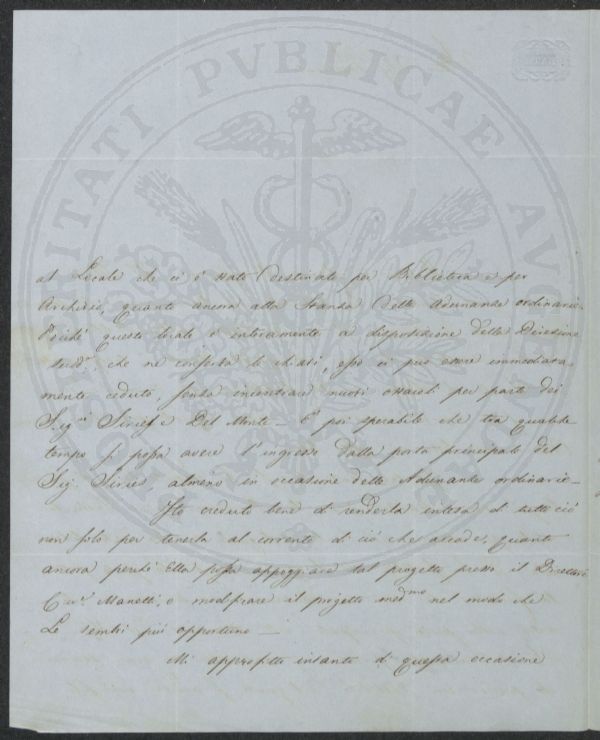 PROSPERITATI PVBLICAE AVGENDAE
al Locale che ci è stato destinato per Biblioteca e per
Archivio, quanto ancora alla Stanza delle Adunanze ordinarie.
Poiché questo locale è interamente a disposizione della Direzione
sudd.ª, che ne conserva le chiavi, esso ci può essere immediata-
mente ceduto, senza incontrare nuovi ostacoli per parte dei
Sig.ri Siries e Del Monte — È poi sperabile che tra qualche
tempo si possa avere l'ingresso dalla porta principale del
Sig. Siries, almeno in occasione delle Adunanze ordinarie —
Ho creduto bene di renderla intesa di tutto ciò
non solo per tenerla al corrente di ciò che accade, quanto
ancora perché Ella possa appoggiare tal progetto presso il Direttore
Cav.e Manetti, o modificare il progetto med.mo nel modo che
Le sembri più opportuno —
Mi approfitto intanto di questa occasione